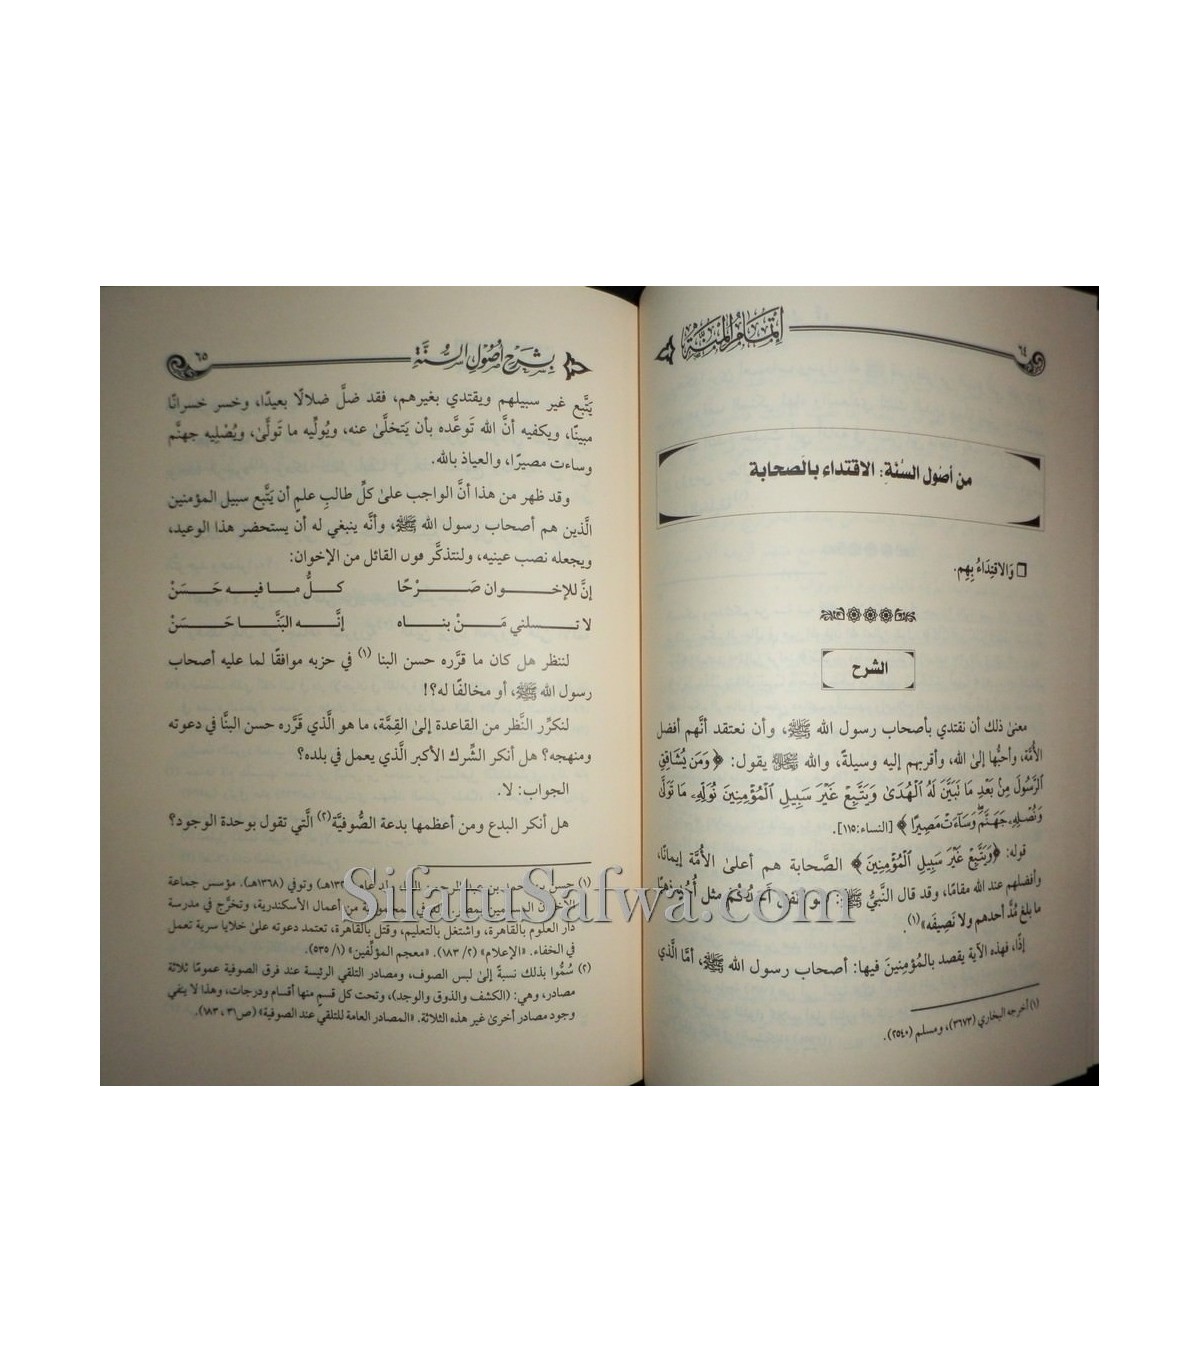 ٦٤
إتمام المنة
من أصول السنة: الاقتداء بالصحابة
❏ وَالاقتِدَاءُ بِهِم.
الشرح
معنىٰ ذلك أن نقتدي بأصحاب رسول الله ﷺ، وأن نعتقد أنَّهم أفضل
الأُمَّة، وأحبُّها إلى الله، وأقربهم إليه وسيلةً، والله يقول: ﴿ وَمَن يُشَاقِقِ
الرَّسُولَ مِنۢ بَعْدِ مَا تَبَيَّنَ لَهُ الْهُدَىٰ وَيَتَّبِعْ غَيْرَ سَبِيلِ الْمُؤْمِنِينَ نُوَلِّهِۦ مَا تَوَلَّىٰ
وَنُصْلِهِۦ جَهَنَّمَ وَسَآءَتْ مَصِيرًا ﴾ [النساء:١١٥].
قوله: ﴿وَيَتَّبِعْ غَيْرَ سَبِيلِ الْمُؤْمِنِينَ﴾ الصَّحابة هم أعلىٰ الأُمَّة إيمانًا،
وأفضلهم عند الله مقامًا، وقد قال النَّبيُّ ﷺ: أَحَدُكُمْ مثل أُحُدٍ ذهبًا
ما بلغ مُدَّ أحدهم ولا نَصِيفَه»(١).
إذًا، فهذه الآية يقصد بالمُؤمِنينَ فيها: أصحاب رسول الله ﷺ، أمَّا الَّذي
(١) أخرجه البخاري (٣٦٧٣)، ومسلم (٢٥٤٠).
بشرح أصول السُّنَّة
٦٥
يَتَّبع غير سبيلهم ويقتدي بغيرهم، فقد ضلَّ ضلالًا بعيدًا، وخسر خسرانًا
مبينًا، ويكفيه أنَّ الله تَوعَّده بأن يَتخلَّىٰ عنه، ويُولِّيه ما تَولَّىٰ، ويُصْلِيه جهنَّم
وساءت مصيرًا، والعياذ بالله.
وقد ظهر من هذا أنَّ الواجب علىٰ كلِّ طالبِ علمٍ أن يَتَّبع سبيل المؤمنين
الَّذين هم أصحاب رسول الله ﷺ، وأنَّه ينبغي له أن يستحضر هذا الوعيد،
ويجعله نصب عينيه، ولنتذكَّر قول القائل من الإخوان:
إنَّ للإخـوان صَـرْحًا كـلُّ مـا فيـه حَـسَنْ
لا تـسلني مَـنْ بنـاه إنَّـه البَنَّـا حَـسَنْ
لننظر هل كان ما قرَّره حسن البنا (١) في حزبه موافقًا لما عليه أصحاب
رسول الله ﷺ، أو مخالفًا له؟!
لنكرِّر النَّظر من القاعدة إلىٰ القِمَّة، ما هو الَّذي قَرَّره حسن البنَّا في دعوته
ومنهجه؟ هل أنكر الشِّرك الأكبر الَّذي يعمل في بلده؟
الجواب: لا.
هل أنكر البدع ومن أعظمها بدعة الصُّوفيَّة(٢) الَّتي تقول بوحدة الوجود؟
(١) حسن بن أحمد بن عبد الرحمن البنا، ولد عام هـ) وتوفي (١٣٦٨هـ). مؤسس جماعة
الإخوان المسلمين بمصر، ولد في المحمودية من أعمال الأسكندرية، وتخرَّج في مدرسة
دار العلوم بالقاهرة، واشتغل بالتعليم، وقتل بالقاهرة، تعتمد دعوته علىٰ خلايا سرية تعمل
في الخفاء. «الإعلام» (٢/ ١٨٣). «معجم المؤلِّفين» (١/ ٥٣٥).
(٢) سُمُّوا بذلك نسبةً إلىٰ لبس الصوف، ومصادر التلقي الرئيسة عند فرق الصوفية عمومًا ثلاثة
مصادر، وهي: (الكشف والذوق والوجد)، وتحت كل قسمٍ منها أقسام ودرجات، وهذا لا ينفي
وجود مصادر أخرىٰ غير هذه الثلاثة. «المصادر العامة للتلقي عند الصوفية» (ص٣١، ١٨٣).
SifatuSafwa.com